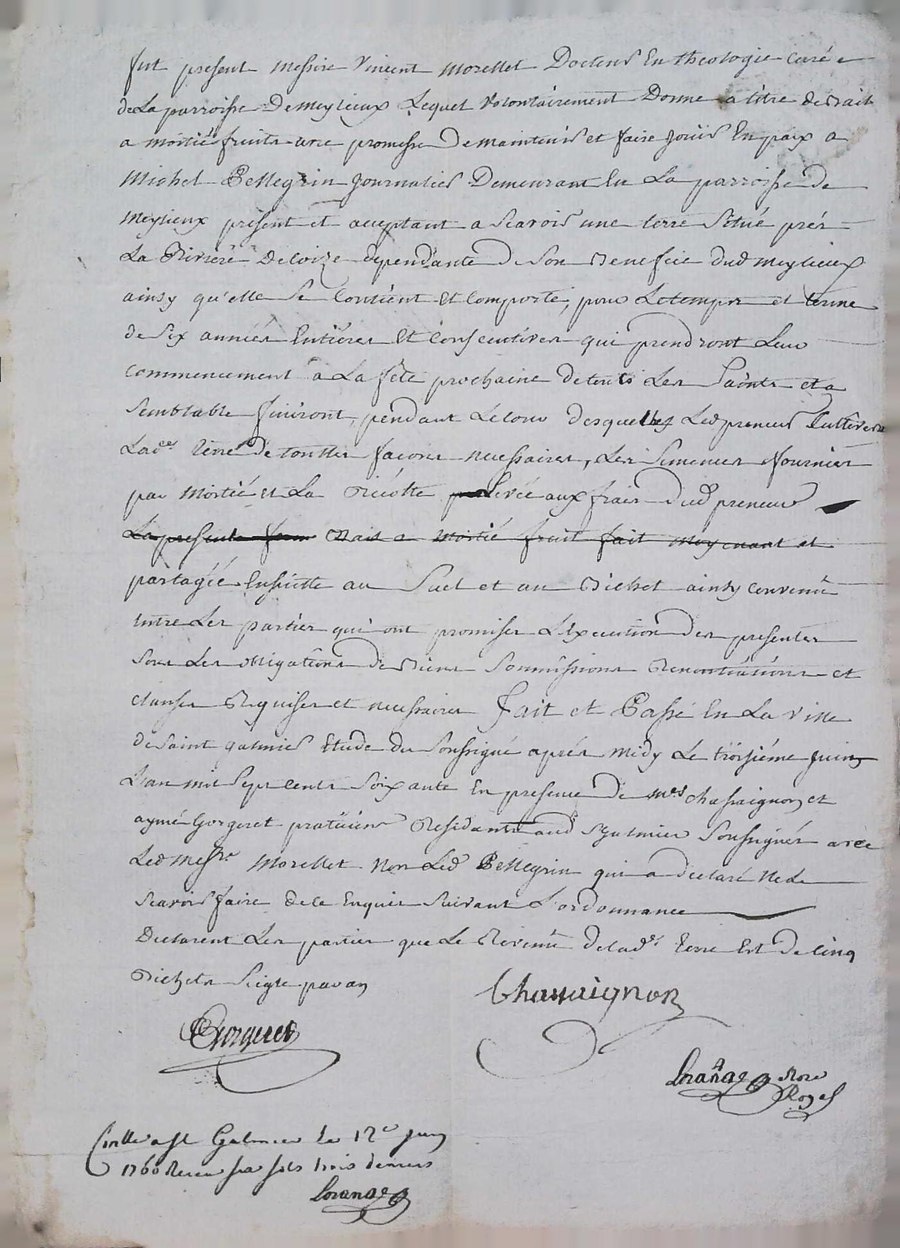 fut present Messire Vincent Morellet Docteur En theologie curé
de La parroisse De Meylieux Lequel volontairement Donne a titre de Bail
a moitié fruits avec promesse De maintenir et faire jouir En paix a
Michel Pellegrin journalier Demeurant En La parroisse de
Meylieux present et acceptant a Scavoir une terre Situé prés
La Riviére De Coize dependante de Son Benefice dud Meylieux
ainsy qu'elle Se Contient Et Comporte, pour Le temps et terme
de Six années Entiéres Et Consecutives qui prendront Leur
commencement a La fête prochaine de touts Les Saints et a
Semblable finiront, pendant Le cour desquelles Led preneur Cultivera
Lad.ee Terre de touttes façons necessaires, Les Semences fournies
par Moitié et La Récolte Levée aux frais Dud preneur
La presente Bail a Moitié fruit fait Moyenant et
partagée Ensuitte au et au Bichet ainsy convenu
Entre Les parties qui ont promises L'Execution des presentes
Sous Les obligations de Biens Soumissions Renontiations et
clauses Requises et necessaires Fait et Passé En La Ville
de Saint galmier Etude du Soussigné aprés Midy Le troisiéme juin
L'an mil Sept Cents Soixante En presence De Mes chassaignon et
aymé Gorgeret pratiticiens Residants aud S.galmier Soussignés avec
Led Messr. Morellet Non Led Pellegrin qui a declaré Ne Le
Scavoir faire de ce Enquis Suivant L'ordonnance
Declarent Les parties que Le Revenu de lad.e Terre Est De Cinq
Bichets Seigle par an
Chassaignon
Gorgeret
Lorange Nore
Royal
Conllé a St Galmier le 12e juin
1760 Receu six sols trois deniers
Lorange